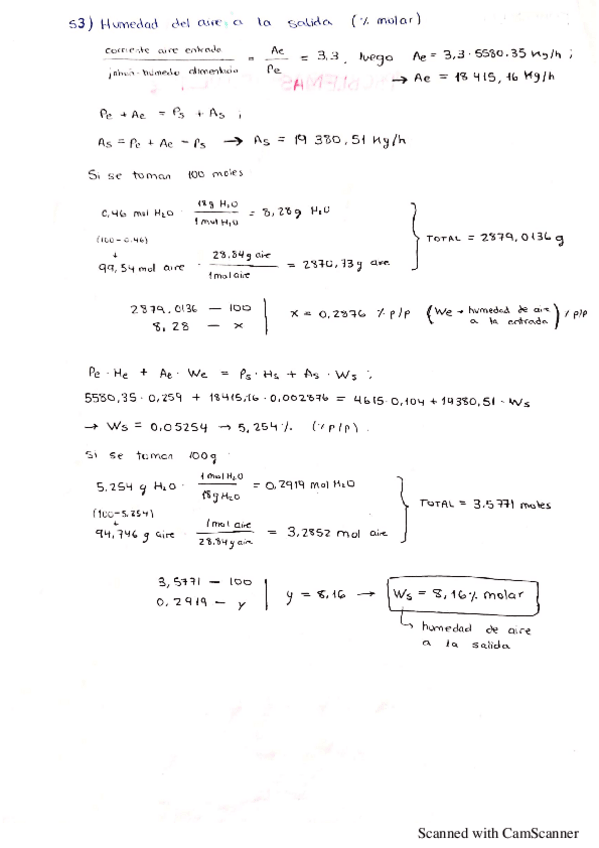 53) Humedad del aire a la salida (% molar)
corriente aire entrada / jabón húmedo alimentación = Ae / Pe = 3,3. luego Ae = 3,3 · 5580.35 Kg/h ;
→ Ae = 18 415,16 Kg/h
Pe + Ae = Ps + As ;
As = Pe + Ae - Ps → As = 19 380,51 Kg/h
Si se toman 100 moles
0,46 mol H2O · 18g H2O / 1 mol H2O = 8,28 g H2O
(100-0.46)
↓
99,54 mol aire · 28.84 g aire / 1 mol aire = 2870,73 g aire
TOTAL = 2879,0136 g
2879.0136 — 100
8,28 — x
x = 0,2876 % p/p (We → humedad de aire a la entrada) % p/p
Pe · He + Ae · We = Ps · Hs + As · Ws ;
5580,35 · 0,259 + 18415,16 · 0,002876 = 4615 · 0,104 + 19380,51 · Ws
→ Ws = 0,05254 → 5,254 % (% p/p).
Si se toman 100g
5.254 g H2O · 1 mol H2O / 18 g H2O = 0,2919 mol H2O
(100-5.254)
↓
94,746 g aire · 1 mol aire / 28.84 g aire = 3,2852 mol aire
TOTAL = 3.5771 moles
3,5771 — 100
0,2919 — y
y = 8,16 → Ws = 8,16 % molar
humedad de aire
a la salida
Scanned with CamScanner